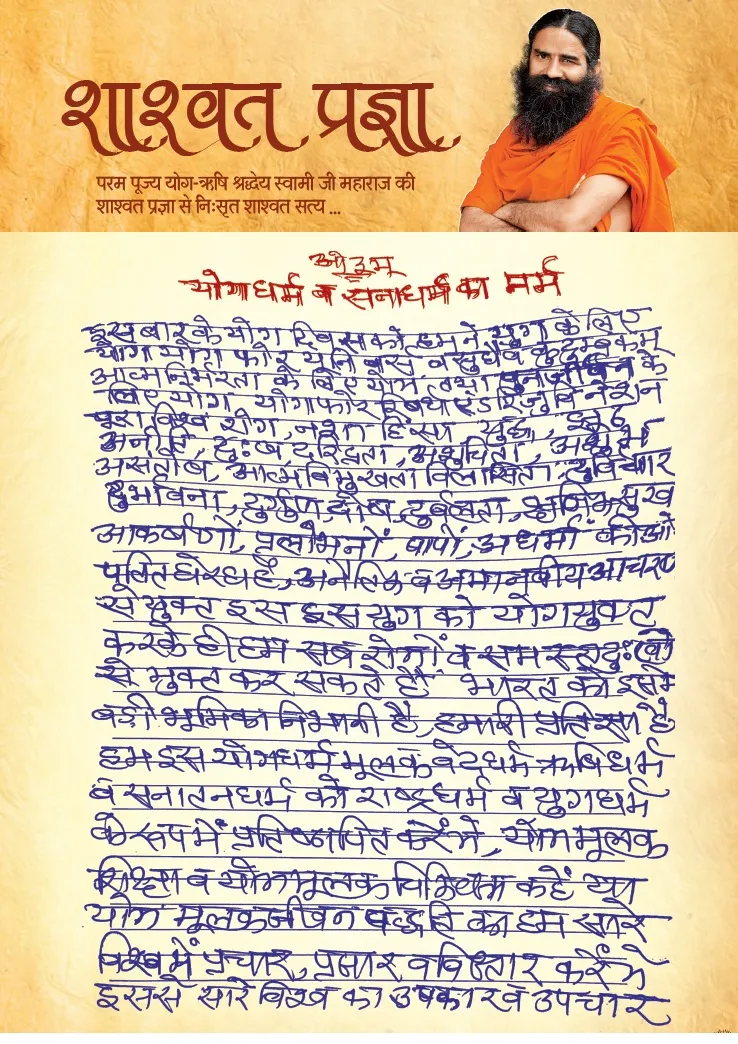 शाश्वत प्रज्ञा
परम पूज्य योग-ऋषि श्रद्धेय स्वामी जी महाराज की
शाश्वत प्रज्ञा से निःसृत शाश्वत सत्य ...
ओ३म्
योगधर्म व सनाधर्म का मर्म
इस बार के योग दिवस को हमने युग के लिए
योग योगा फोर यूनिवर्स वसुधैव कुटुम्बकम्
आत्मनिर्भरता के लिए योग तथा के
लिए योग योगा फोर
पूरा विश्व रोग, नशा हिंसा युद्ध, झूठ
अनीति, दुःख दरिद्रता, अशुचिता, अधर्म
असतोष, आत्मविमुखता विलासिता, दुर्विचार
दुर्भावना, दुर्गुण, दोष, दुर्बलता, भ्रमित सुख
आकर्षणों, प्रलोभनों, पापों, अधर्मों की ओर
अनैतिक व अमानवीय आचरण
से युक्त इस इस युग को योगयुक्त
करके ही हम सब रोगों व समस्त दुःखों
से मुक्त कर सकते हैं भारत को इसमें
बड़ी भूमिका निभानी है, हमारी प्रतिज्ञा है
हम इस योगधर्म मूलक वेदधर्म ऋषिधर्म
व सनातनधर्म को राष्ट्रधर्म व युगधर्म
के रूप में प्रतिष्ठापित करेंगे, योगमूलक
शिक्षा व योगमूलक चिकित्सा कहें या
योग मूलक जीवन पद्धति का हम सारे
विश्व में प्रचार, प्रसार व विस्तार करेंगे
इससे सारे विश्व का उपकार व उपचार